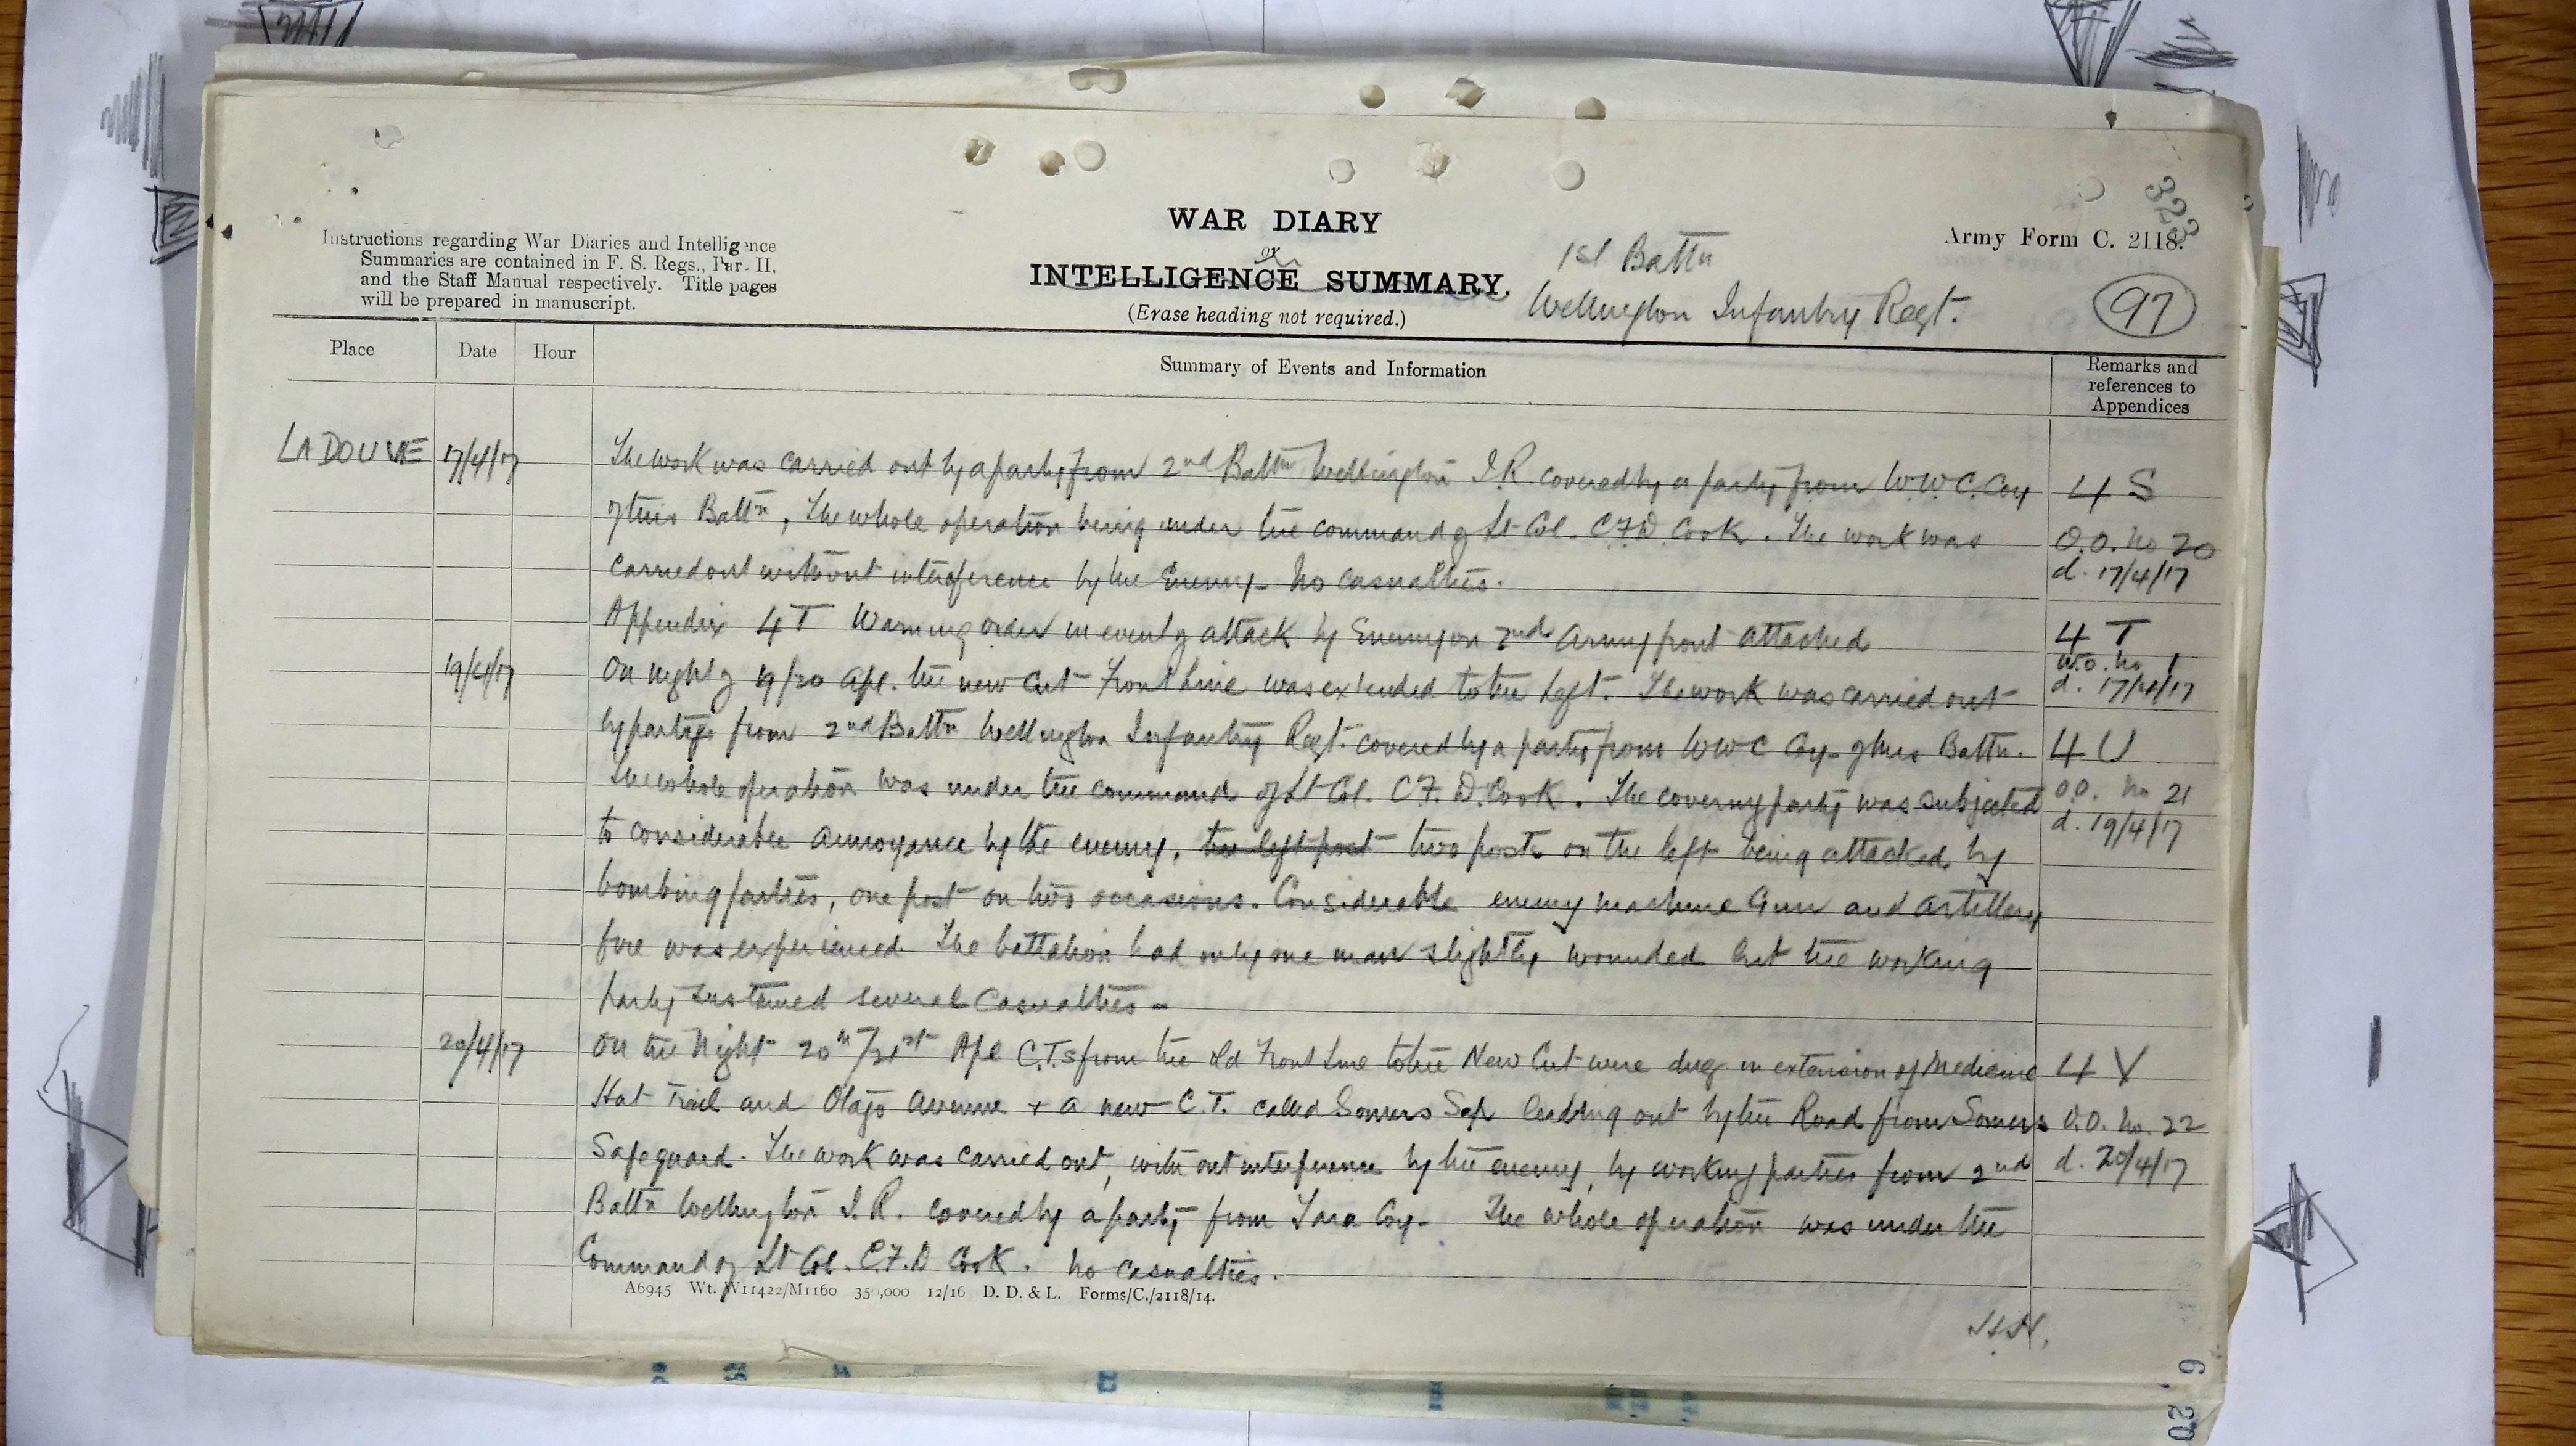 323
WAR DIARY
or
INTELLIGENCE SUMMARY.
(Erase heading not required.)
Instructions regarding War Diaries and Intelligence
Summaries are contained in F. S. Regs., Par- II.
and the Staff Manual respectively. Title pages
will be prepared in manuscript.
1st Battn
Wellington Infantry Regt.
Army Form C. 2118.
97
Place Date Hour Summary of Events and Information
Remarks and
references to
Appendices
LA DOUVE 17/4/17 The work was carried out by a party from 2nd Battn Wellington I.R. covered by a party from W.W.C. Coy
of this Battn, The whole operation being under the command of Lt Col. C.F.D. Cook. The work was
carried out without interference by the Enemy - No casualties.
4 S
O.O. No 20
d. 17/4/17
Appendix 4T Warning order in event of attack by Enemy on 2nd Army front attached
4 T
W.O. No 1
d. 17/4/17
19/4/17 On night of 19/20 Apl. the new cut Front Line was extended to the left. The work was carried out
by partys from 2nd Battn Wellington Infantry Regt. covered by a party from WWC Coy of this Battn.
The whole operation was under the command of Lt Col. C.F.D. Cook. The covering party was subjected
to considerable annoyance by the enemy, two left post two posts on the left being attacked by
bombing parties, one post on two occasions. Considerable enemy machine Gun and artillery
fire was experienced. The battalion had only one man slightly wounded but the working
party sustained several casualties -
4 U
O.O. No 21
d. 19/4/17
20/4/17 On the Night 20th/21st Apl C.Ts from the old Front Line to the New Cut were dug in extension of Medicine
Hat Trail and Otago Avenue + a new C.T. called Somers Sap leading out by the Road from Somers
Safeguard. The work was carried out, without interference by the enemy, by working parties from 2nd
Battn Wellington I.R. covered by a party from Tara Coy - The whole operation was under the
Command of Lt Col. C.F.D Cook. No casualties.
4 V
O.O. No. 22
d. 20/4/17
A6945 Wt. W11422/M1160 350,000 12/16 D. D. & L. Forms/C./2118/14.